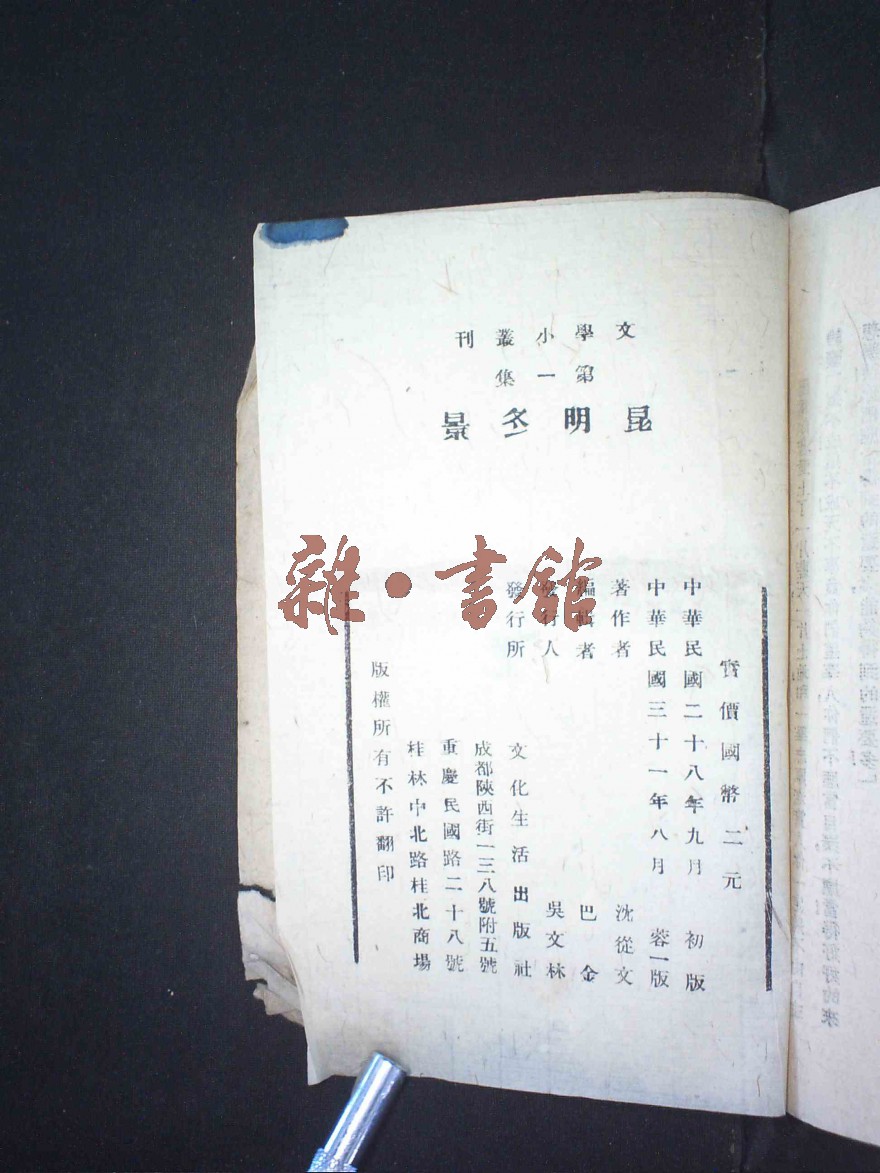 文學小叢刊
第一集
昆明冬景
實價國幣二元
中華民國二十八年九月 初版
中華民國三十一年八月 蓉一版
著作者 沈從文
編輯者 巴金
發行人 吳文林
發行所 文化生活出版社
成都陝西街一三八號附五號
重慶民國路二十八號
桂林中北路桂北商場
版權所有不許翻印
雜·書館